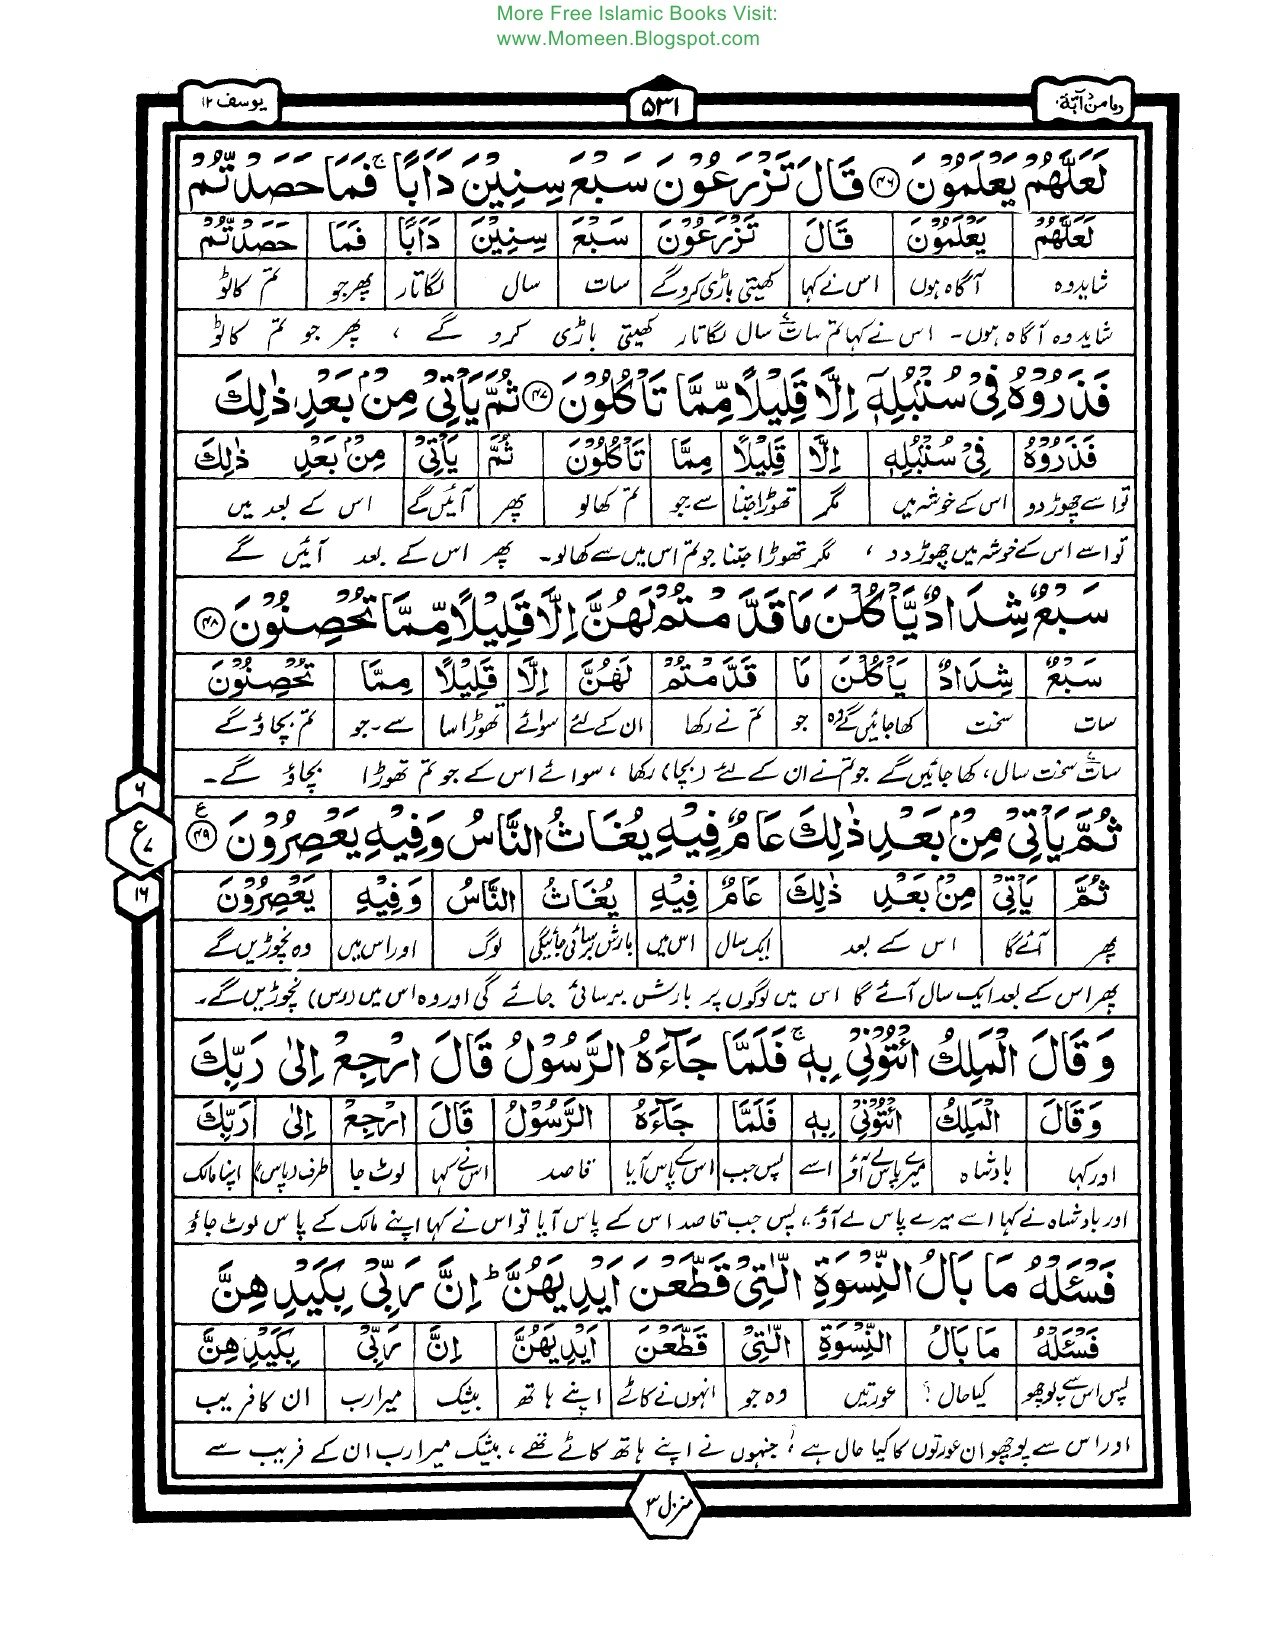 More Free Islamic Books Visit:
www.Momeen.Blogspot.com
یوسف ۱۲
۵۳۱
لَعَلَّهُمْ يَعْلَمُوْنَ ۴۶ قَالَ تَزْرَعُوْنَ سَبْعَ سِنِيْنَ دَاَبًا ۚ فَمَا حَصَدْتُّمْ
لَعَلَّهُمْ يَعْلَمُوْنَ قَالَ تَزْرَعُوْنَ سَبْعَ سِنِيْنَ دَاَبًا فَمَا حَصَدْتُّمْ
شاید وہ آگاہ ہوں اس نے کہا کھیتی باڑی کرو گے سات سال لگاتار پھر جو تم کاٹو
شاید وہ آگاہ ہوں۔ اس نے کہا تم سات سال لگاتار کھیتی باڑی کرو گے ، پھر جو تم کاٹو
فَذَرُوْهُ فِيْ سُنْۢبُلِهٖٓ اِلَّا قَلِيْلًا مِّمَّا تَاْكُلُوْنَ ۴۷ ثُمَّ يَاْتِيْ مِنْۢ بَعْدِ ذٰلِكَ
فَذَرُوْهُ فِيْ سُنْۢبُلِهٖٓ اِلَّا قَلِيْلًا مِمَّا تَاْكُلُوْنَ ثُمَّ يَاْتِيْ مِنْۢ بَعْدِ ذٰلِكَ
تو اسے چھوڑ دو اس کے خوشہ میں مگر تھوڑا جتنا سے جو تم کھالو پھر آئیں گے اس کے بعد میں
تو اسے اس کے خوشہ میں چھوڑ دو ، مگر تھوڑا جتنا جو تم اس میں سے کھالو۔ پھر اس کے بعد آئیں گے
سَبْعٌ شِدَادٌ يَّاْكُلْنَ مَا قَدَّمْتُمْ لَهُنَّ اِلَّا قَلِيْلًا مِّمَّا تُحْصِنُوْنَ ۴۸
سَبْعٌ شِدَادٌ يَاْكُلْنَ مَا قَدَّمْتُمْ لَهُنَّ اِلَّا قَلِيْلًا مِمَّا تُحْصِنُوْنَ
سات سخت کھا جائیں گے وہ جو تم نے رکھا ان کے لئے سوائے تھوڑا سا سے۔ جو تم بچاؤ گے
سات سخت سال، کھا جائیں گے جو تم نے ان کے لئے (بچا) رکھا ، سوائے اس کے جو تم تھوڑا بچاؤ گے۔
ثُمَّ يَاْتِيْ مِنْۢ بَعْدِ ذٰلِكَ عَامٌ فِيْهِ يُغَاثُ النَّاسُ وَفِيْهِ يَعْصِرُوْنَ ۴۹ ع
ثُمَّ يَاْتِيْ مِنْۢ بَعْدِ ذٰلِكَ عَامٌ فِيْهِ يُغَاثُ النَّاسُ وَفِيْهِ يَعْصِرُوْنَ
پھر آئے گا اس کے بعد ایک سال اس میں بارش برسائی جائیگی لوگ اور اس میں وہ نچوڑیں گے
پھر اس کے بعد ایک سال آئے گا اس میں لوگوں پر بارش برسائی جائے گی اور وہ اس میں (رس) نچوڑیں گے۔
۶
ع
۷
۱۶
وَقَالَ الْمَلِكُ ائْتُوْنِيْ بِهٖ ۚ فَلَمَّا جَآءَهُ الرَّسُوْلُ قَالَ ارْجِعْ اِلٰى رَبِّكَ
وَقَالَ الْمَلِكُ ائْتُوْنِيْ بِهٖ فَلَمَّا جَآءَهُ الرَّسُوْلُ قَالَ ارْجِعْ اِلٰى رَبِّكَ
اور کہا بادشاہ میرے پاس لے آؤ اسے پس جب اس کے پاس آیا قاصد اس نے کہا لوٹ جا طرف (پاس) اپنا مالک
اور بادشاہ نے کہا اسے میرے پاس لے آؤ ، پس جب قاصد اس کے پاس آیا تو اس نے کہا اپنے مالک کے پاس لوٹ جاؤ
فَسْـَٔلْهُ مَا بَالُ النِّسْوَةِ الّٰتِيْ قَطَّعْنَ اَيْدِيَهُنَّ ؕ اِنَّ رَبِّيْ بِكَيْدِهِنَّ
فَسْـَٔلْهُ مَا بَالُ النِّسْوَةِ الّٰتِيْ قَطَّعْنَ اَيْدِيَهُنَّ اِنَّ رَبِّيْ بِكَيْدِهِنَّ
پس اس سے پوچھو کیا حال ؟ عورتیں وہ جو انہوں نے کاٹے اپنے ہاتھ بیشک میرا رب ان کا فریب
اور اس سے پوچھو ان عورتوں کا کیا حال ہے ؟ جنہوں نے اپنے ہاتھ کاٹے تھے ، بیشک میرا رب ان کے فریب سے
منزل ۳